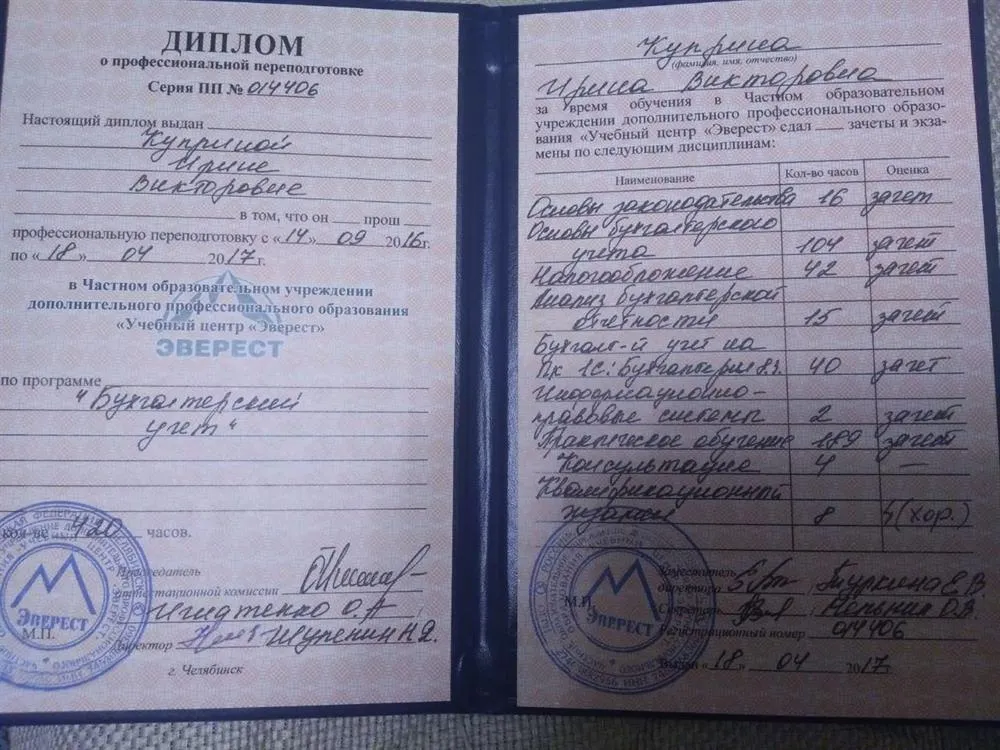 ДИПЛОМ
о профессиональной переподготовке
Серия ПП № 014406
Настоящий диплом выдан
Куприной
Ирине
Викторовне
в том, что он прош
профессиональную переподготовку с «14» 09 2016г.
по «18» 04 2017г.
в Частном образовательном учреждении
дополнительного профессионального образования
«Учебный центр «Эверест»
ЭВЕРЕСТ
по программе
"Бухгалтерский
учет"
кол-во 420 часов.
Председатель
аттестационной комиссии
Игнатенко О.А.
Директор Шуренин Н.Я.
ЭВЕРЕСТ
М.П.
г. Челябинск
Куприна
(фамилия, имя, отчество)
Ирина Викторовна
за время обучения в Частном образовательном
учреждении дополнительного профессионального образо-
вания «Учебный центр «Эверест» сдал зачеты и экза-
мены по следующим дисциплинам:
Наименование Кол-во часов Оценка
Основы законодательства 16 зачет
Основы бухгалтерского
учета 104 зачет
Налогообложение 42 зачет
Анализ бухгалтерской
отчетности 15 зачет
Бухгалт-й учет на
ПК 1С: Бухгалтерия 8.3. 40 зачет
Информационно-
правовые системы 2 зачет
Практическое обучение 189 зачет
Консультация 4 —
Квалификационный
экзамен 8 4(хор.)
Заместитель
директора Туркина Е.В.
Секретарь Мельник О.В.
Регистрационный номер 014406
М.П.
ЭВЕРЕСТ
Выдан «18» 04 2017г.